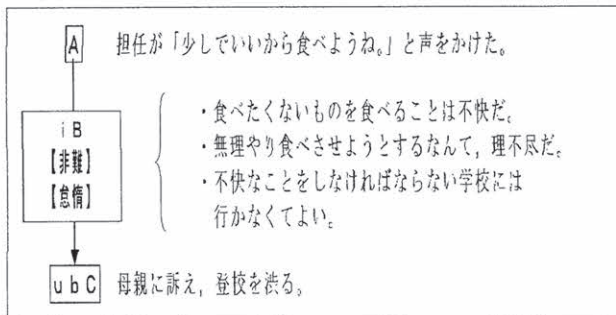 A 担任が「少しでいいから食べようね。」と声をかけた。
iB
【非難】
【怠惰】
・食べたくないものを食べることは不快だ。
・無理やり食べさせようとするなんて，理不尽だ。
・不快なことをしなければならない学校には
行かなくてよい。
ubC 母親に訴え，登校を渋る。